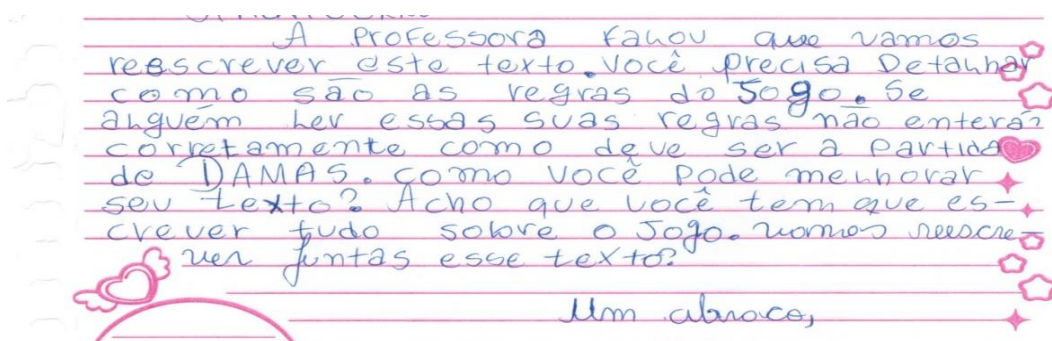 A Professora Falou que vamos
reescrever este texto. Você precisa Detalhar
como são as regras do Jogo. Se
alguém ler essas suas regras não enterá
corretamente como deve ser a Partida
de DAMAS. como você Pode melhorar
seu texto? Acho que você tem que es-
crever tudo sobre o Jogo. vamos reescre-
ver juntas esse texto?
Um abraço,